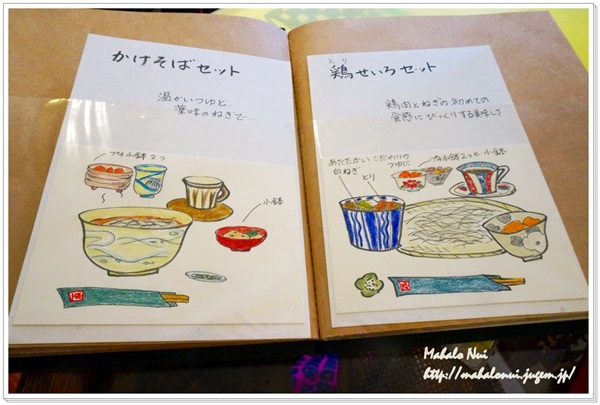 かけそばセット
温かいつゆと、
薬味のねぎで…
プチ小鉢2つ
小鉢
とり
鶏せいろセット
鶏肉とねぎの初めての
食感にびっくりする美味しさ
あたたかいこだわりの
つゆに
白ねぎ
とり
プチ小鉢2つと小鉢
Mahalo Nui
http://mahalonui.jugem.jp/